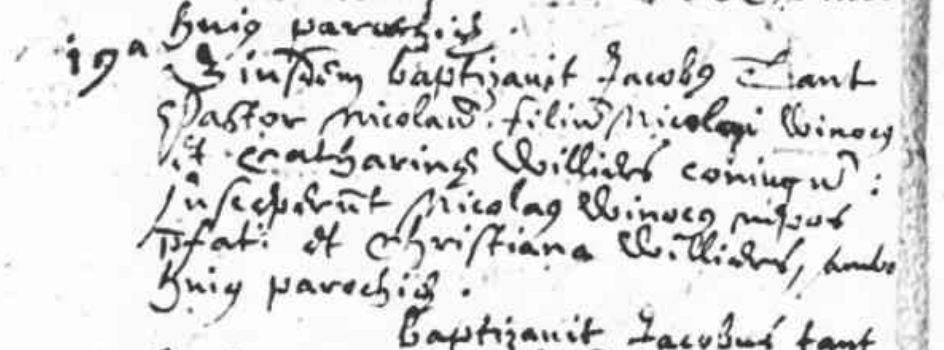 huius parochiæ.
19a Eiusdem baptizavit Jacobus Tant
Pastor Nicolaum filium Nicolai Winocq
et Catharinæ Williers coniugum:
susceperunt Nicolaus Winocq nepos
pfati et Christiana Williers, ambo
huius parochiæ.
baptizavit Jacobus tant